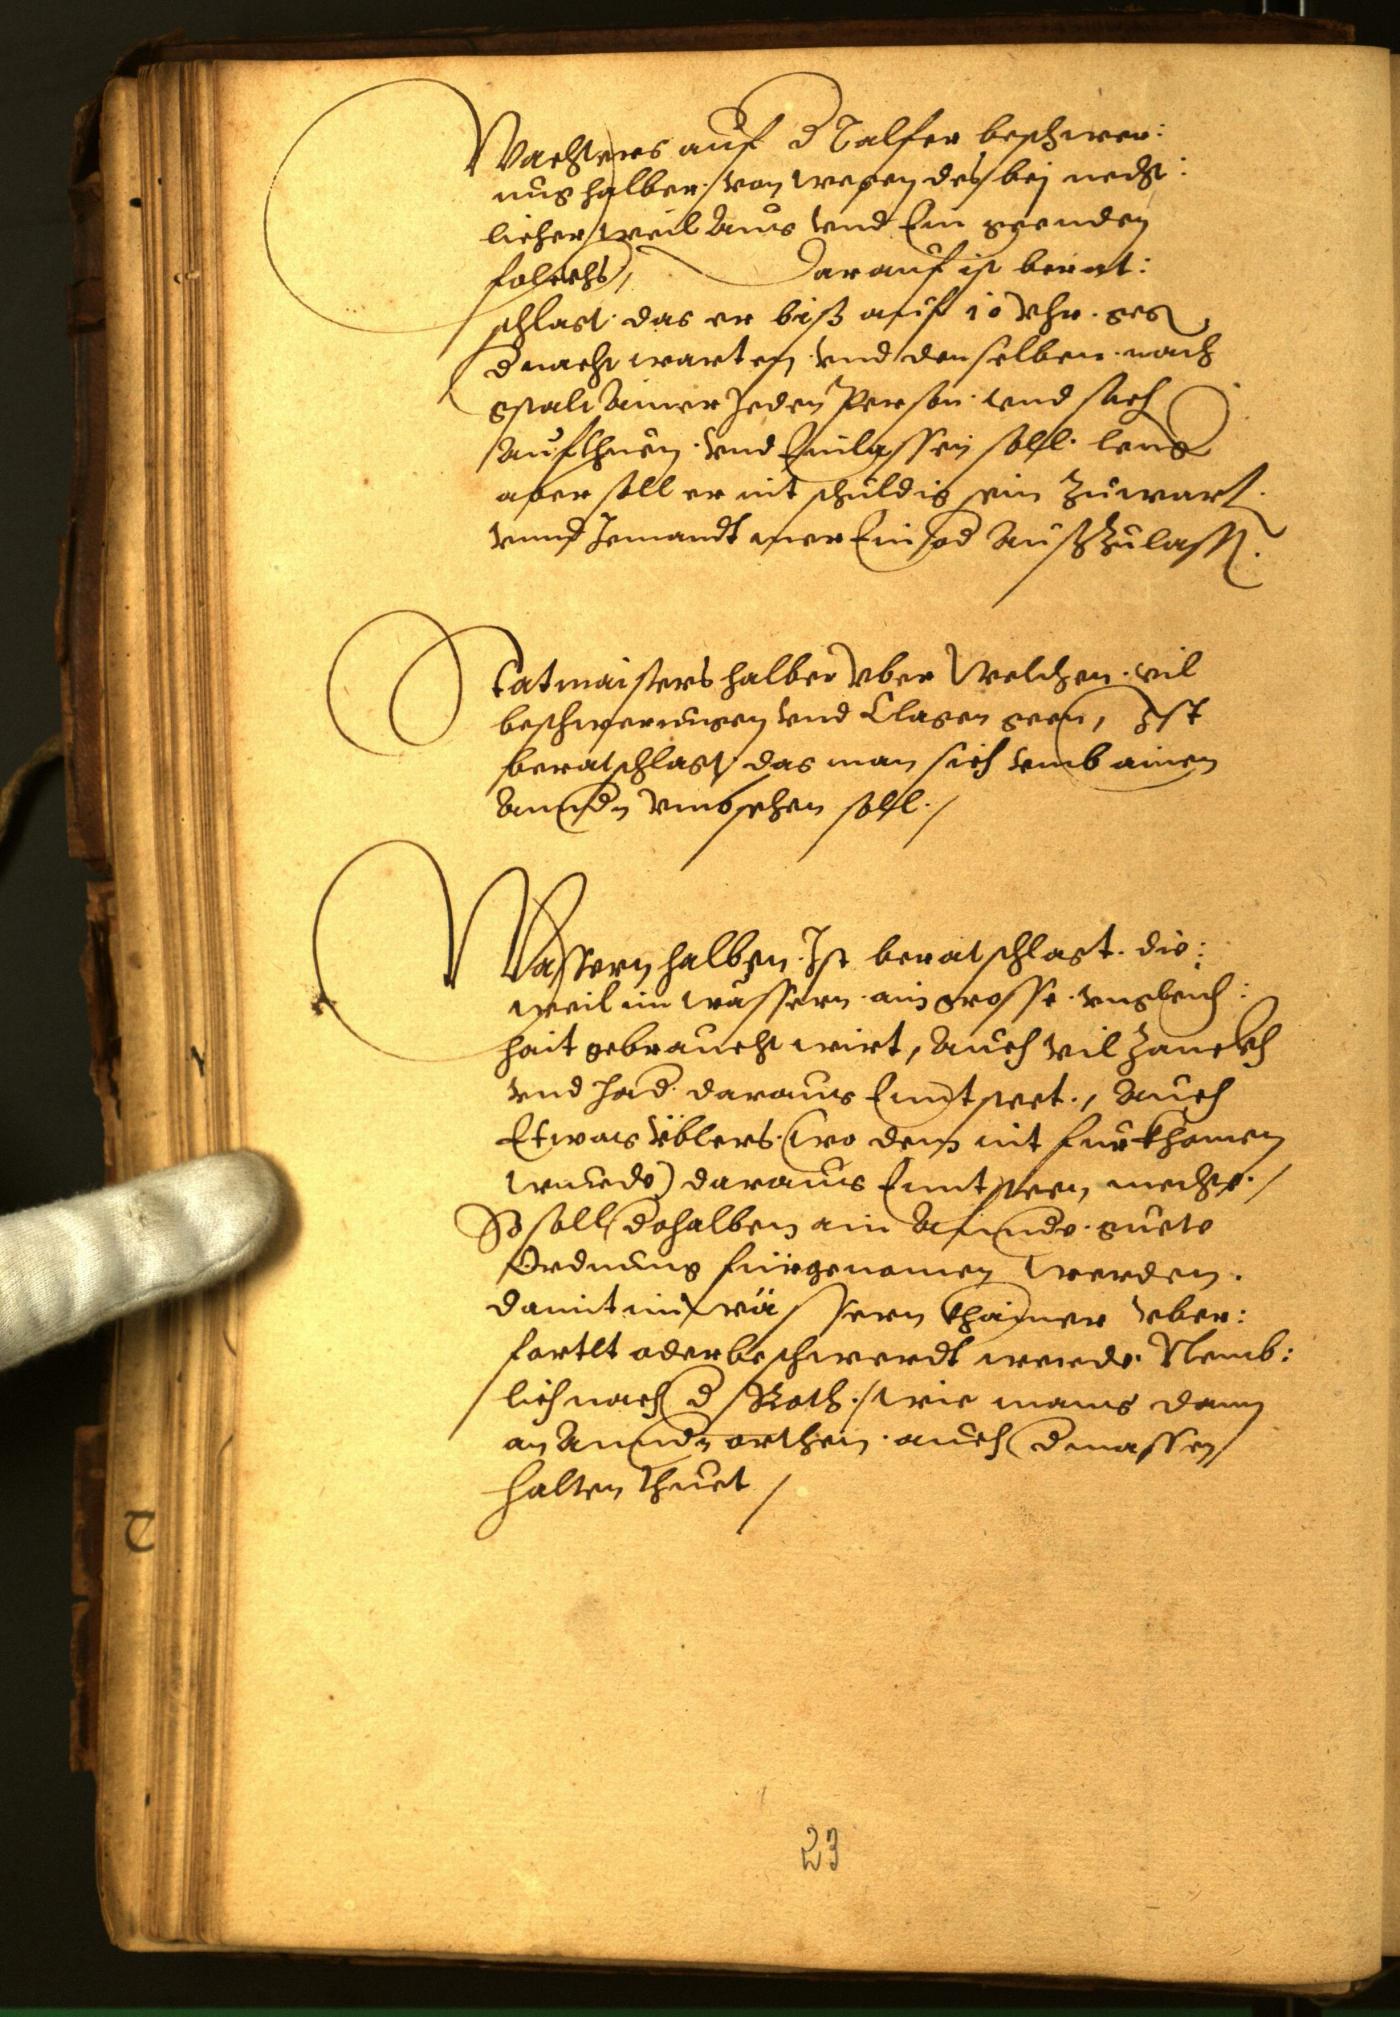 Wachters auf d Talfer beschwer:
ung halber, von wegen des bej necht:
licher weil Aus vnd Ein geenden
folckhs, Darauf ist berat:
schlagt das er biß auf 10 Vhr. gegn
d nacht warten vnd denselben nach
gstalt Ainer Jeden Person vnd sach
Aufthuen vnd Einlassen soll. leng
aber soll er nit schuldig sein Zuwart.
vnnd Jemandt mer Ein od Außzulassn.
Statmaisters halber Vber Welchen vil
beschwerungen vnd Clagen geen, Ist
beratschlagt das man sich vmb ainen
Anndn vmbsehen soll./
Wassern halben Ist beratschlagt. die:
weil im wässern ain grosse vngleich:
hait gebraucht wirt, Auch vil Zanckh
vnd had. daraus Enntsteet., Auch
Etwas üblers (wo dem nit furkhomen
wurde) daraus Enntsteen mechte./
So soll dohalben ain Annde. guete
Ordnung fürgenomen werden.
damit im wässern khainer vber:
fortlt oder beschwerdt werde. Nemb:
lich nach d Roth./ wie mans dann
an Anndn orthen auch dmassen
halten thuet /
23